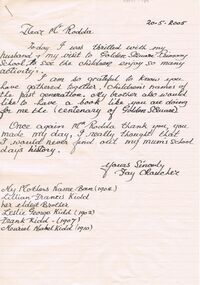 20-5-2005
Dear Mr Rodda
Today I was thrilled with my
husband & my visit to Golden Square Primary
School to see the children enjoy so many
activitys.
I am so grateful to know you
have gathered together, Childrens names of
the past generation. My brother also would
like to have a book like you are doing
for me the (Centenary of Golden Square)
Once again Mr Rodda thank you, you
made my day, I really thought that
I would never find out my mums school
days history.
Yours Sincerly
Fay
My Mothers Name Born (1905)
Lillian Francis Kidd
her eldest Brother
Leslie George Kidd (1902)
Frank Kidd - (1907)
Muariel Mabel Kidd (1910)